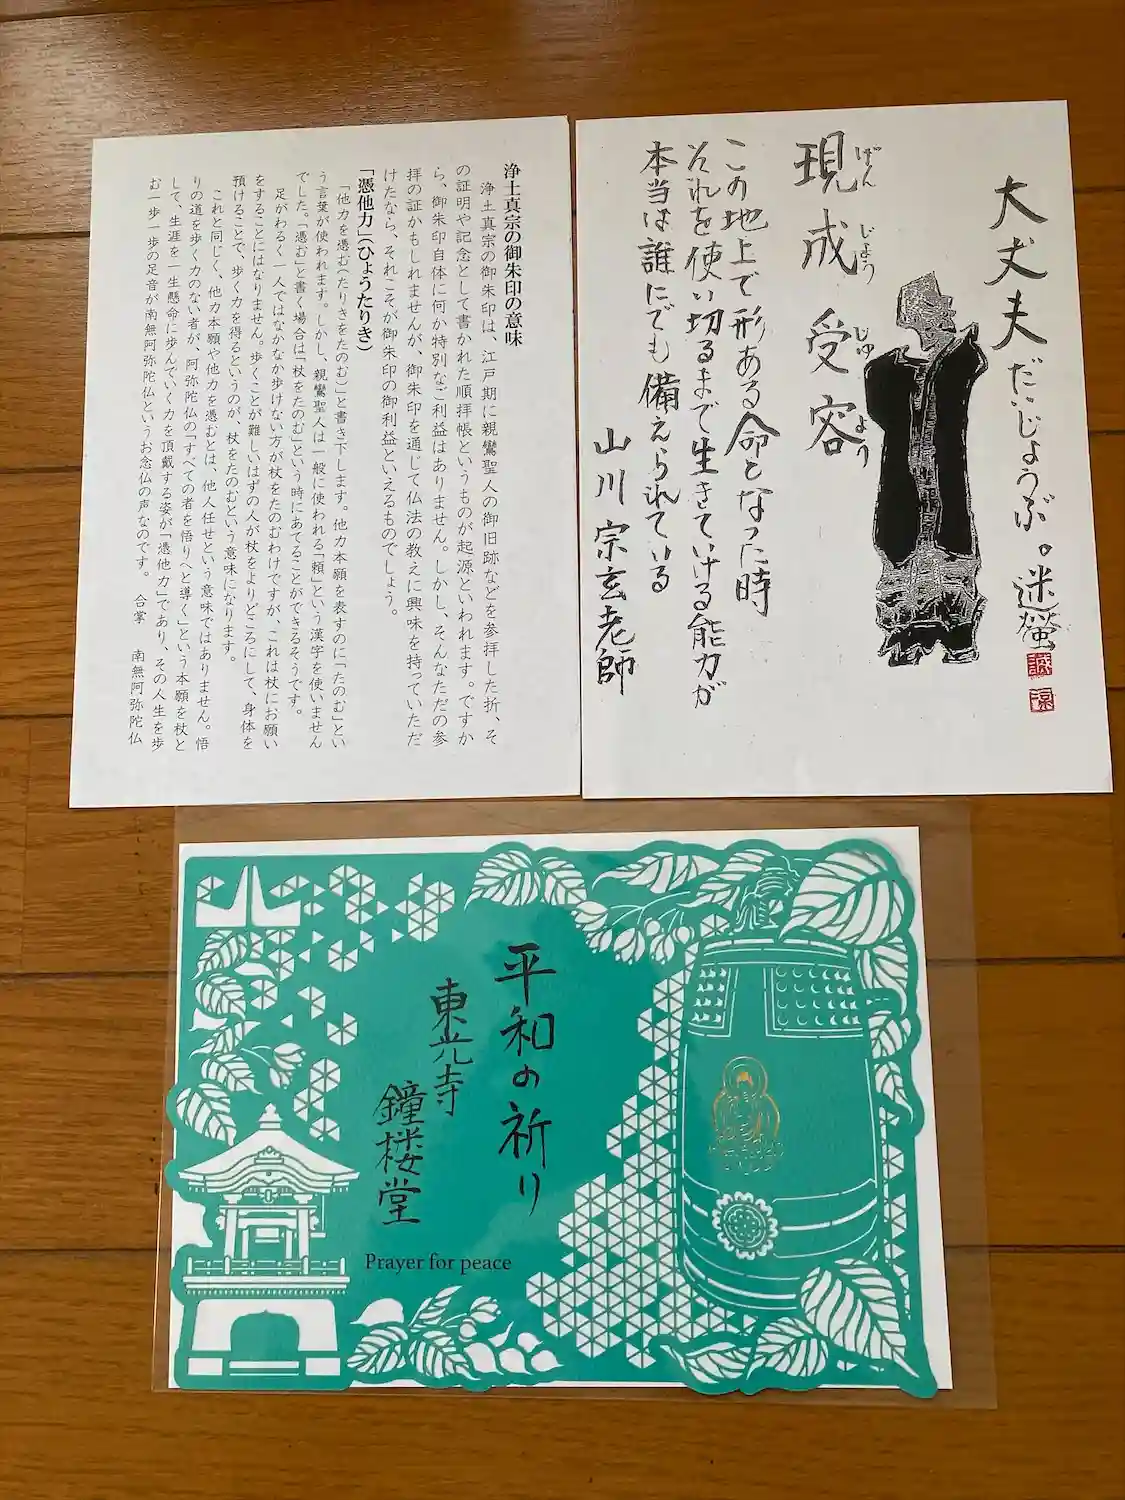 浄土真宗の御朱印の意味
浄土真宗の御朱印は、江戸期に親鸞聖人の御旧跡などを参拝した折、そ
の証明や記念として書かれた順拝帳というものが起源といわれます。ですか
ら、御朱印自体に何か特別なご利益はありません。しかし、そんなただの参
拝の証かもしれませんが、御朱印を通じて仏法の教えに興味を持っていただ
けたなら、それこそが御朱印の御利益といえるものでしょう。
「憑他力」(ひょうたりき)
「他力を憑む(たりきをたのむ)」と書き下します。他力本願を表すのに「たのむ」とい
う言葉が使われます。しかし、親鸞聖人は一般に使われる「頼」という漢字を使いません
でした。「憑む」と書く場合は「杖をたのむ」という時にあてることができるそうです。
足がわるく一人ではなかなか歩けない方が杖をたのむわけですが、これは杖にお願い
をすることにはなりません。歩くことが難しいはずの人が杖をよりどころにして、身体を
預けることで、歩く力を得るというのが、杖をたのむという意味になります。
これと同じく、他力本願や他力を憑むとは、他人任せという意味ではありません。悟
りの道を歩く力のない者が、阿弥陀仏の「すべての者を悟りへと導く」という本願を杖と
して、生涯を一生懸命に歩んでいく力を頂戴する姿が「憑他力」であり、その人生を歩
む一歩一歩の足音が南無阿弥陀仏というお念仏の声なのです。 合掌 南無阿弥陀仏
大丈夫だいじょうぶ。迷螢
現成受容
げんじょうじゅよう
この地上で形ある命となった時
それを使い切るまで生きていける能力が
本当は誰にでも備えられている
山川宗玄老師
平和の祈り
東光寺
鐘楼堂
Prayer for peace